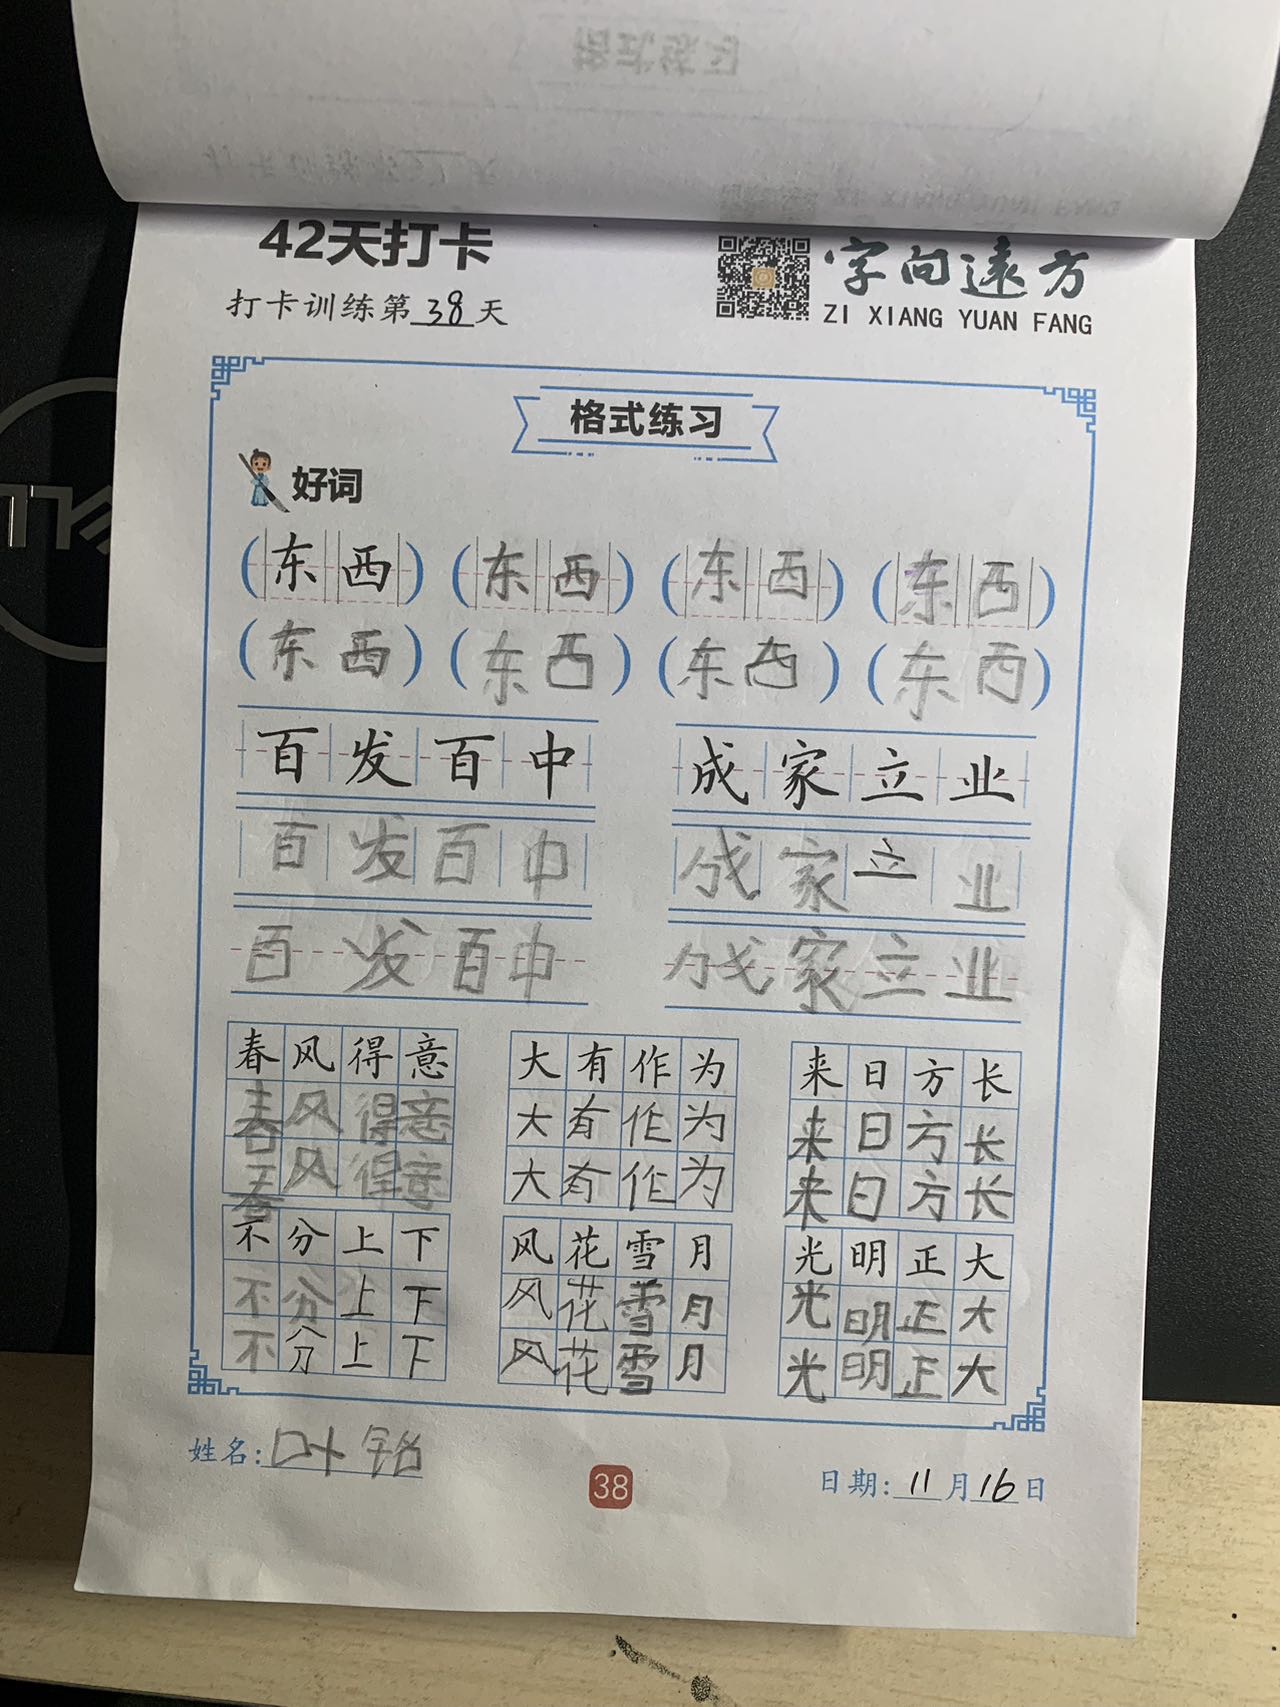 格式练习
42天打卡
字向远方
打卡训练第38天
ZI XIANG YUAN FANG
格式练习
好词
(东西) (东西) (东西) (东西)
(东西) (东西) (东西) (东西)
百发百中 成家立业
百发百中 成家立业
百发百中 成家立业
春风得意 大有作为 来日方长
春风得意 大有作为 来日方长
春风得意 大有作为 来日方长
不分上下 风花雪月 光明正大
不分上下 风花雪月 光明正大
不分上下 风花雪月 光明正大
姓名:叶铭
38
日期:11月16日